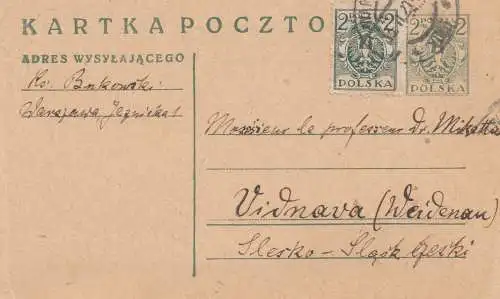 KARTKA POCZTO
2 2
POLSKA
2 2
POLSKA
ADRES WYSYŁAJĄCEGO
Ks. Bukowski
Warszawa, Jezuicka 1
Monsieur le professeur Dr. Mikutka
Vidnava (Weidenau)
Slesko - Śląsk czeski